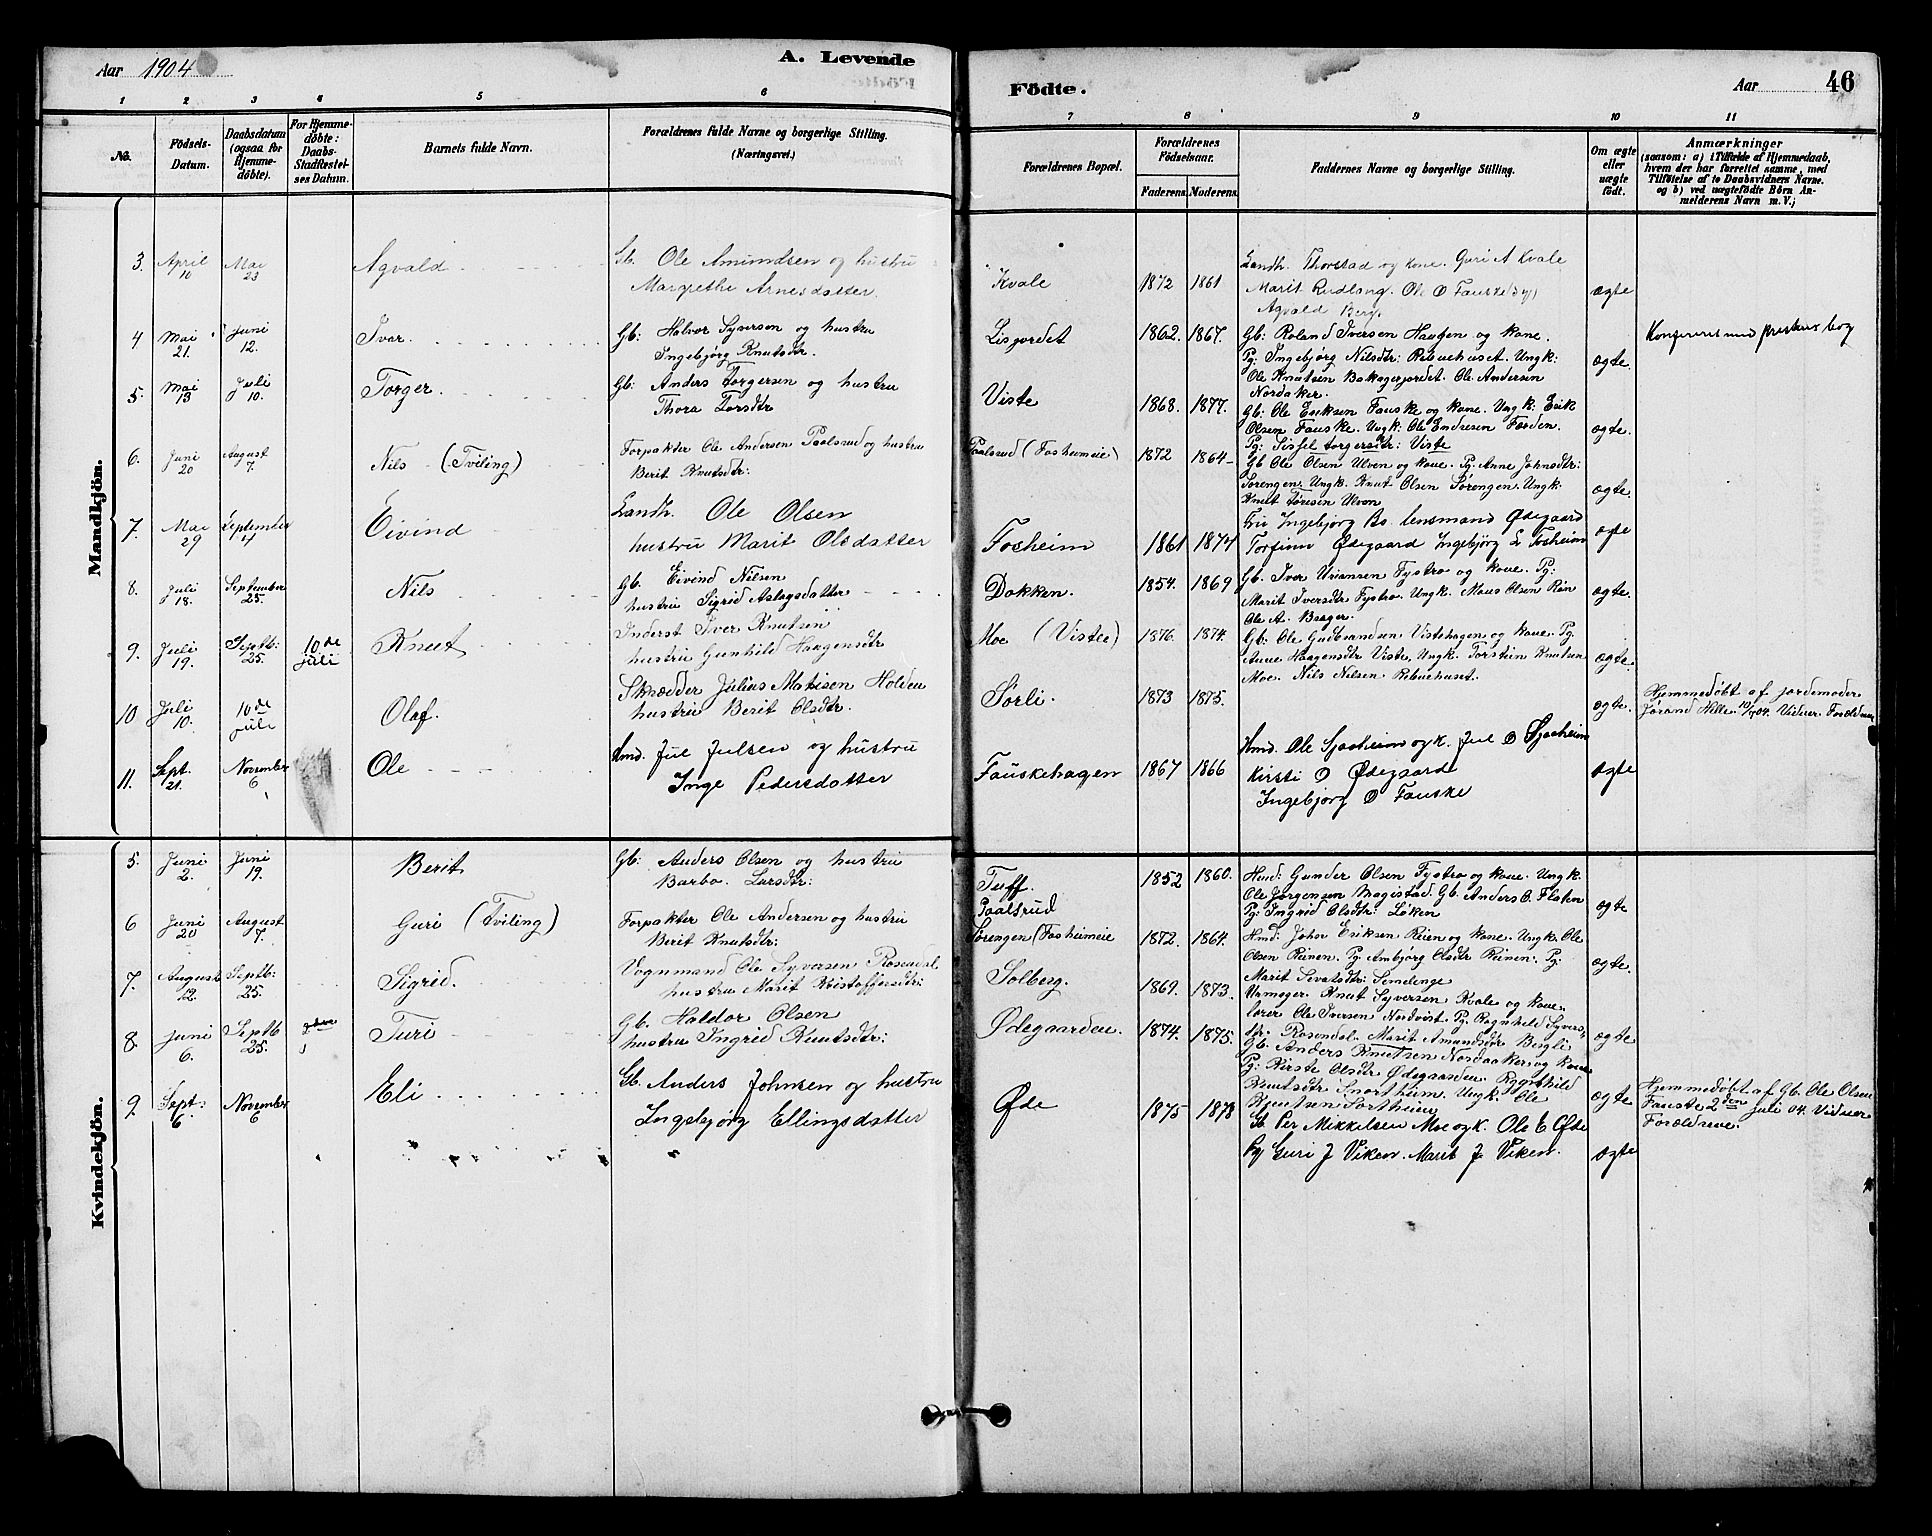 Aar 1904
A. Levende
Födte.
Aar
46
1 2 3 4 5 6 7 8 9 10 11
No.
Födsels-
Datum.
Daabsdatum
(ogsaa for
Hjemme-
döbte).
For Hjemme-
döbte:
Daabs-
Stadfæstel-
ses Datum.
Barnets fulde Navn.
Forældrenes fulde Navne og borgerlige Stilling.
(Næringsvei.)
Forældrenes Bopæl.
Forældrenes
Födselsaar.
Faderens. Moderens.
Faddernes Navne og borgerlige Stilling.
Om ægte
eller
uægte
födt.
Anmærkninger
(saasom: a) i Tilfælde af Hjemmedaab,
hvem der har forrettet samme, med
Tilföielse af to Daabsvidners Navne.
og b) ved uægtefödte Börn An-
melderens Navn m. V.;
Mandkjön.
3. April 10 Mai 23 Agvald Gb. Ole Amundsen og hustru
Margrethe Arnesdatter.
Kvale 1872 1861
Landh. Thorstad og kone. Guri A Kvale
Marit Rudlang. Ole O Fauske
Agvald Berg.
ægte
4 Mai 21. Juni 12. Ivar. Gb: Halvor Syversen og hustru
Ingebjørg Knutsdtr.
Lisgardet 1862. 1867.
Gb: Roland Iversen Haugen og kone.
Pg: Ingebjørg Nilsdtr: Rebnehuset. Ungk:
Ole Knutsen Bakagerjordet. Ole Andersen
Nordaker.
ægte.
Konfereret med prestens bog
5. Mai 13 Juli 10. Torger. Gb: Anders Torgersen og hustru
Thora Torsdtr
Viste 1868. 1877.
Gb: Ole Eriksen Fauske og kone. Ungk: Erik
Olsen Fauske. Ungk: Ole Endresen Færden.
Pg: Sissel Torgersdtr: Viste
ægte.
6. Juni 20 August 7. Nils (Tviling) Forpakter Ole Andersen Paalsrud og hustru
Berit Knutsdtr:
Paalsrud (Fosheimeie) 1872 1864
Gb Ole Olsen Ulven og kone. Pg. Anne Johnsdtr:
Sørengen. Ungk. Knut Olsen Sørengen. Ungk.
Knut Toresen Ulven
ægte.
7. Mai 29 September 4 Eivind Landh. Ole Olsen
hustru Marit Olsdatter
Fosheim 1861 1874
Fru Ingebjørg Bo. lensmand Ødegaard
Torfinn Ødegaard Ingebjørg L Fosheim
ægte
8. Juli 18. September 25. Nils Gb. Eivind Nilsen
hustru Sigrid Aslagsdatter
Dokken. 1854. 1869
Gb. Iver Uriansen Fystro og kone. Pg:
Marit Iversdtr Fystro. Ungk. Maus Olsen Røn
Ole A. Brager.
ægte.
9. Juli 19. Septb: 25. 10de juli Knut Inderst Iver Knutsen
hustru Gunhild Haagensdtr
Moe (Viste) 1876. 1874.
Gb. Ole Gudbrandsen Vistehagen og kone. Pg
Anne Haagensdtr Viste, Ungk. Torstein Knutsen
Moe. Nils Nilsen Rebnehuset.
ægte.
10 Juli 10. 10de jule Olaf. Skrædder Julius Matisen Holden
hustru Berit Olsdtr.
Sørli. 1873 1875.
ægte.
Hjemmedøbt af jordemoder
Jørand Nille. 10/7 04. Vidner. Forældrene
11. Sept. 21. November 6 Ole Hmd. Jul Julsen og hustru
Inge Pedersdatter
Fauskehagen 1867 1866
Hmd. Ole Sjaaheim og k. Jul O Sjaaheim
Kirsti O Ødegaard
Ingebjørg O Fauske
ægte
Kvindekjön.
5. Juni 2. Juni 19. Berit Gb: Anders Olsen og hustru
Barbo. Larsdtr:
Tuff. 1852 1860.
Hmd: Gunder Olsen Fystro og kone. Ungk.
Ole Jørgensen Magistad. Gb. Anders O. Flaten
Pg: Ingrid Olsdtr: Løken
ægte
6 Juni 20 August 7. Guri (Tviling) Forpakter Ole Andersen og hustru
Berit Knutsdtr:
Paalsrud
Sørengen (Fosheimeie 1872. 1864.
Hmd: John Eriksen Reien og kone. Ungk. Ole
Olsen Reinen. Pg Ambjørg Olsdtr Reinen. Pg:
Marit Sevatsdtr: Semelenge
ægte.
7. August 12. Septb: 25. Sigrid. Vognmand Ole Syversen Rosendal,
hustru Marit Kristoffersdtr:
Solberg. 1869. 1873.
Urmager. Knut Syversen Kvale og kone.
lærer Ole Iversen Nordvist. Pg. Ragnhild Syvers-
dtr. Rosendal. Marit Amundsdtr Bergli
ægte
8. Juni 6. Septb 25. Turi Gb. Haldor Olsen
hustru Ingrid Knutsdtr:
Ødegaarden. 1874. 1875.
Gb. Anders Knutsen Nordaaker og kone
Pg: Kirste Olsdtr Ødegaarden. Ragnhild
Knutsdtr. Snortheim. Ungk. Ole
Knutsen Sortheim
ægte
Hjemmedøbt af Gb. Ole Olsen
Fauste 2den Juli 04. Vidner
Forældrene.
9. Sept: 6. November 6 Eli Gb. Anders Johnsen og hustru
Ingebjørg Ellingsdatter
Øde 1875 1878
Gb Per Mikkelsen Moe og k. Ole E Øde
Pg Guri J Viken. Marit J Viken.
ægte